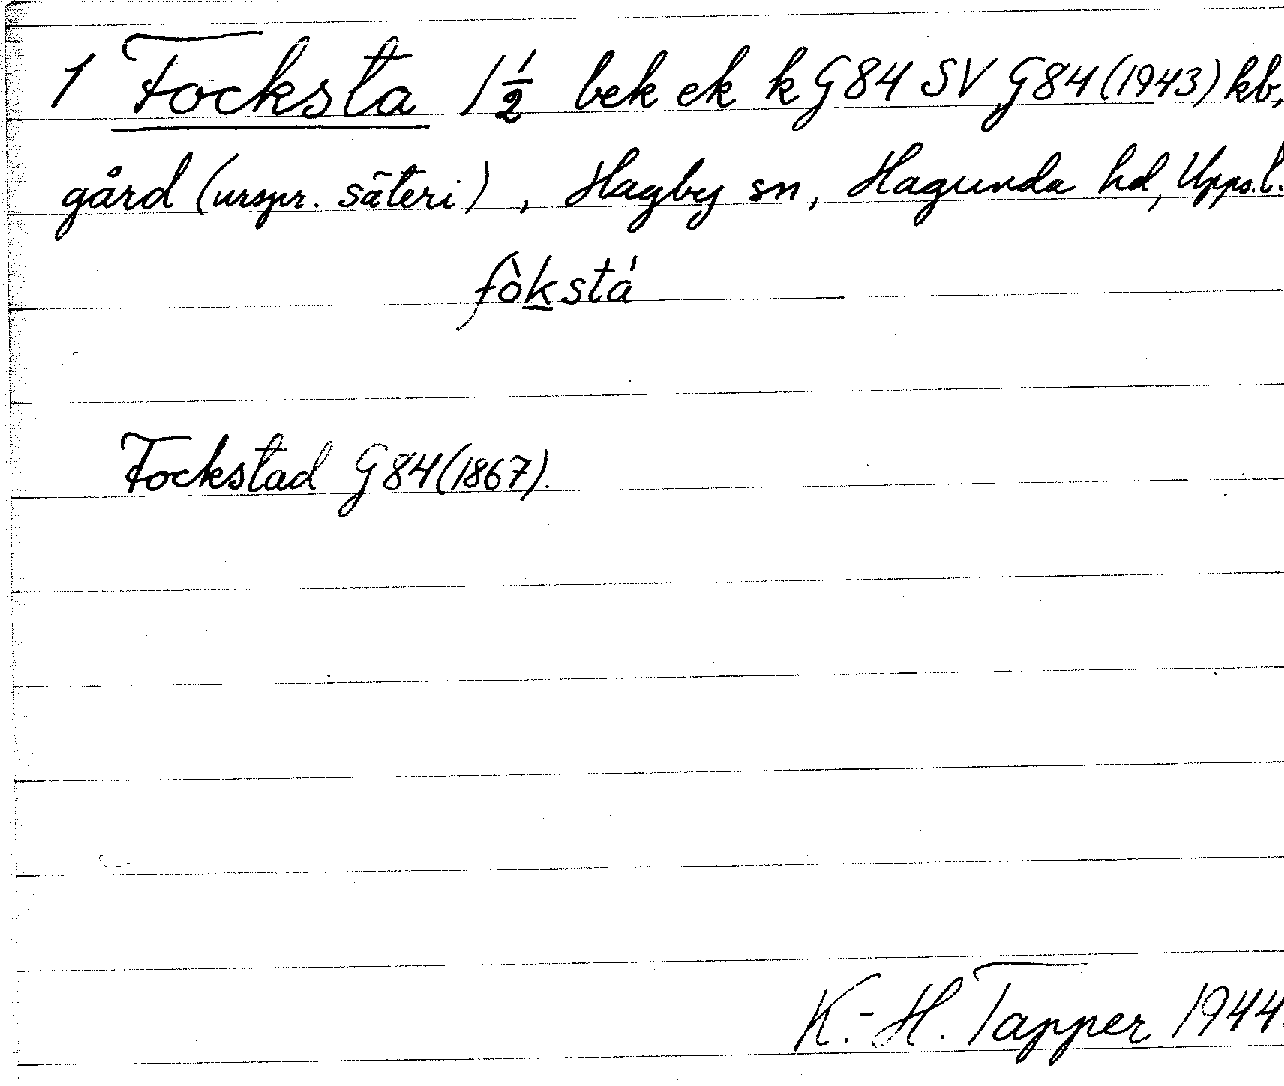 1 Focksta 1 1/2 bek ek k G84 SV G84 (1943) kb,
gård (urspr. säteri), Hagby sn, Hagunda hd, Upps.l.
fòkstá
Fockstad G84 (1867).
K.-H. Tapper 1944.